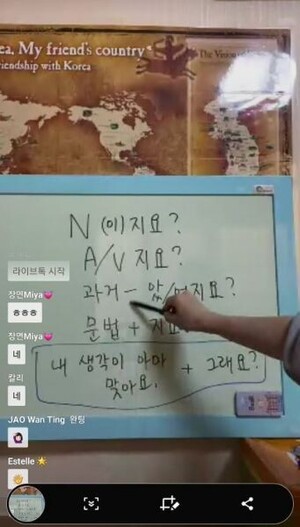 ea, My friend's country"
riendship with Korea
The Vision
N (이)지요?
A/V 지요?
과거 - 았/어지요?
문법 + 지요
내 생각이 아마 + 그래요?
맞아요.
라이브톡 시작
장연Miya💓
ㅎㅎㅎ
장연Miya💓
네
칼리
네
JAO Wan Ting 완팅
Estelle 🌟